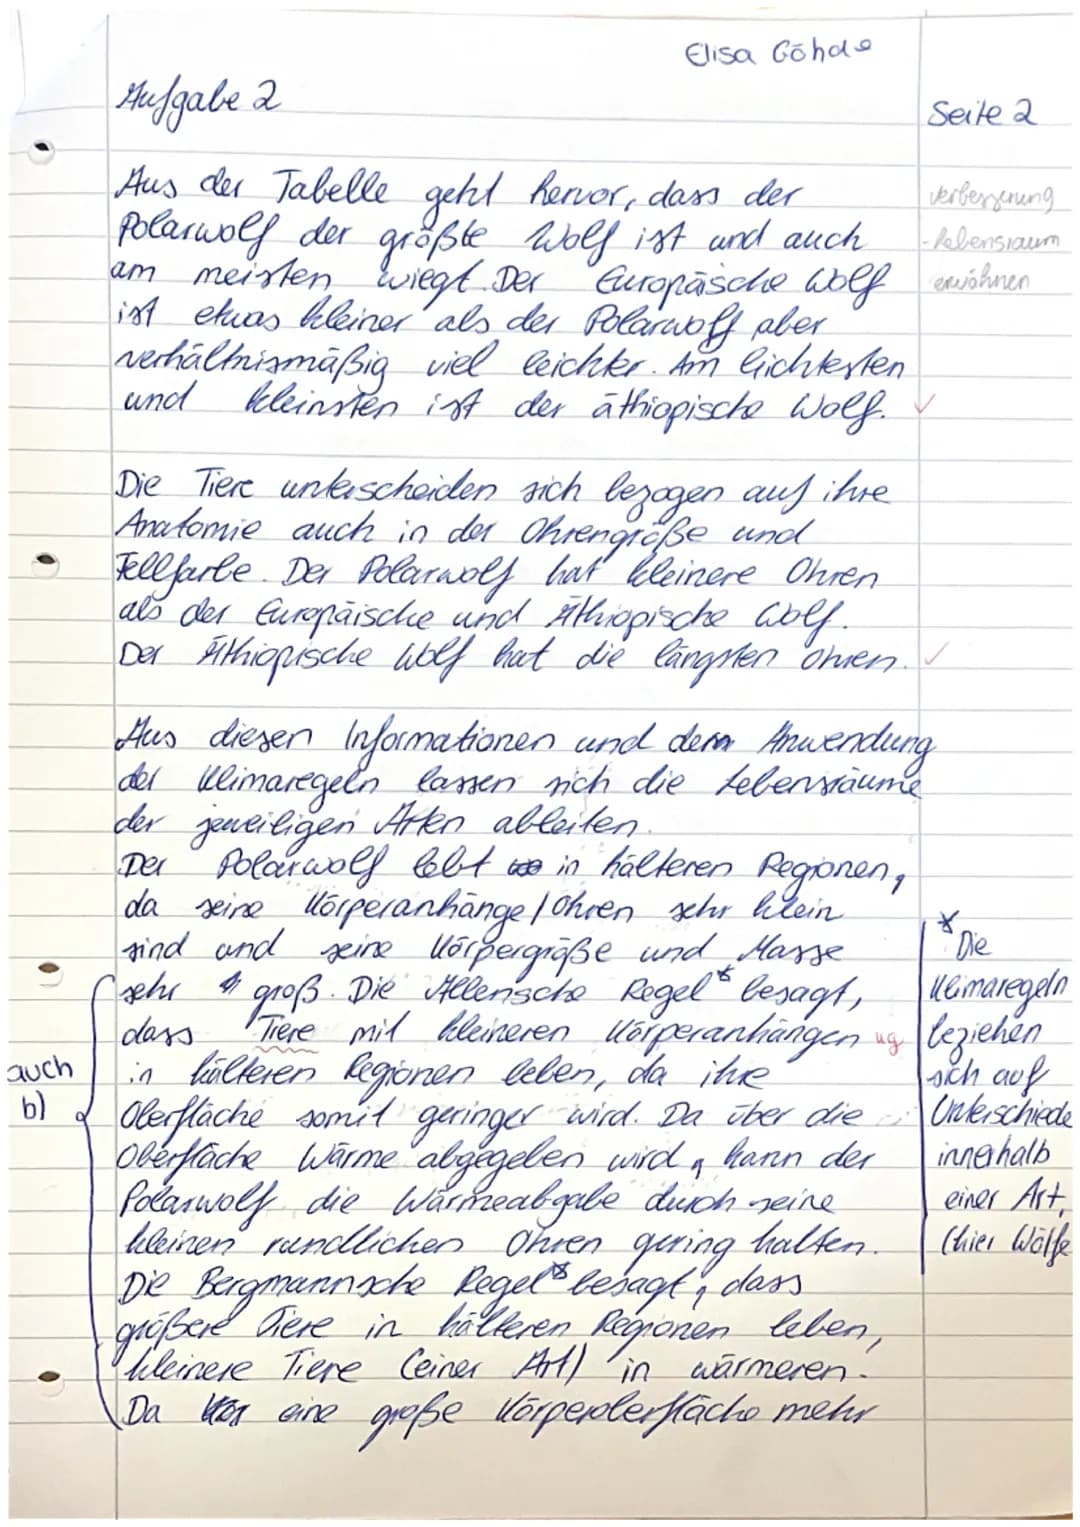 Elisa Göhde
Aufgabe 2
Seite 2
Aus der Tabelle geht hervor, dass der
Polarwolf der größte Wolf ist und auch
am meisten wiegt. Der Europäische Wolf
ist etwas kleiner als der Polarwolf aber
verhältnismäßig viel leichter. Am leichtesten
und kleinsten ist der äthiopische Wolf. ✓
Verbesserung
- Lebensraum
erwähnen
Die Tiere unterscheiden sich bezogen auf ihre
Anatomie auch in der Ohrengröße und
Fellfarbe. Der Polarwolf hat kleinere Ohren
als der Europäische und Äthiopische Wolf.
Der Äthiopische Wolf hat die längsten Ohren. ✓
Aus diesen Informationen und dem Anwendung
der Klimaregeln lassen sich die Lebensräume
der jeweiligen Arten ableiten.
Der Polarwolf lebt in kälteren Regionen,
da seine Körperanhänge / Ohren sehr klein
sind und seine Körpergröße und Masse
sehr groß. Die Allensche Regel* besagt,
dass Tiere mit kleineren Körperanhängen ug
in kälteren Regionen leben, da ihre
Oberfläche somit geringer wird. Da über die
Oberfläche Wärme abgegeben wird, kann der
Polarwolf die Wärmeabgabe durch seine
kleinen rundlichen Ohren gering halten.
Die Bergmannsche Regel* besagt, dass
größere Tiere in kälteren Regionen leben,
kleinere Tiere (einer Art) in wärmeren.
Da eine große Körperoberfläche mehr
auch
b)
* Die
Klimaregeln
beziehen
sich auf
Unterschiede
innerhalb
einer Art,
(hier Wölfe